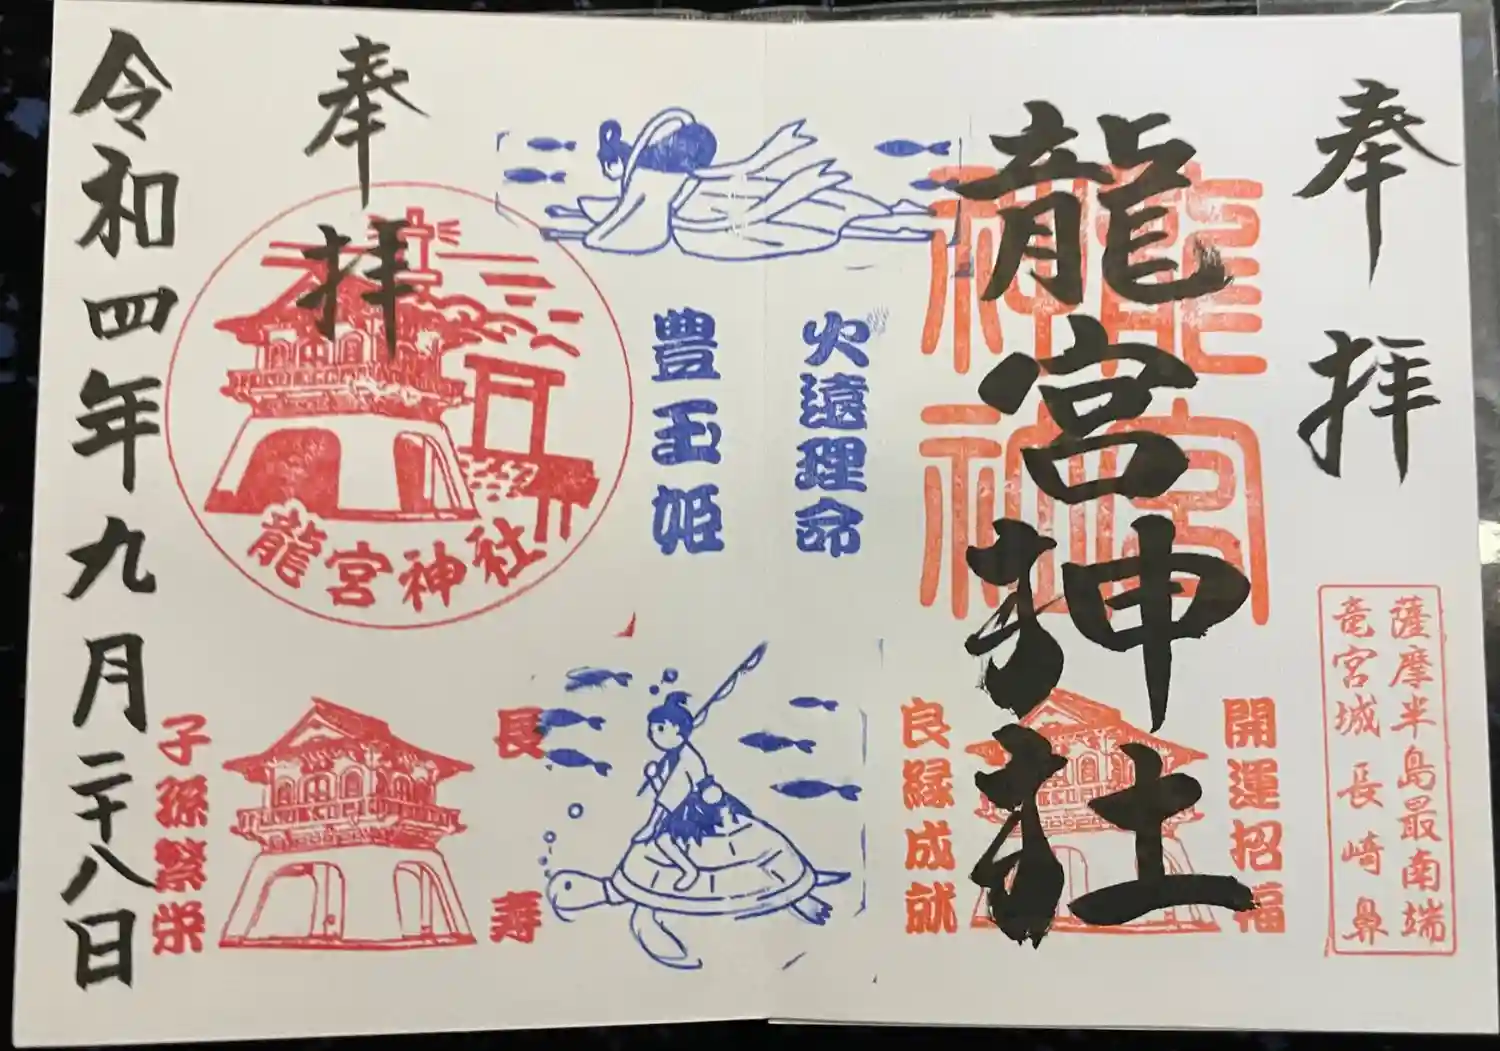 奉拝
薩摩半島最南端
竜宮城 長崎鼻
龍宮神社
龍宮神社
開運招福
良縁成就
火遠理命
豊玉姫
奉拝
龍宮神社
長寿
子孫繁栄
令和四年九月二十八日